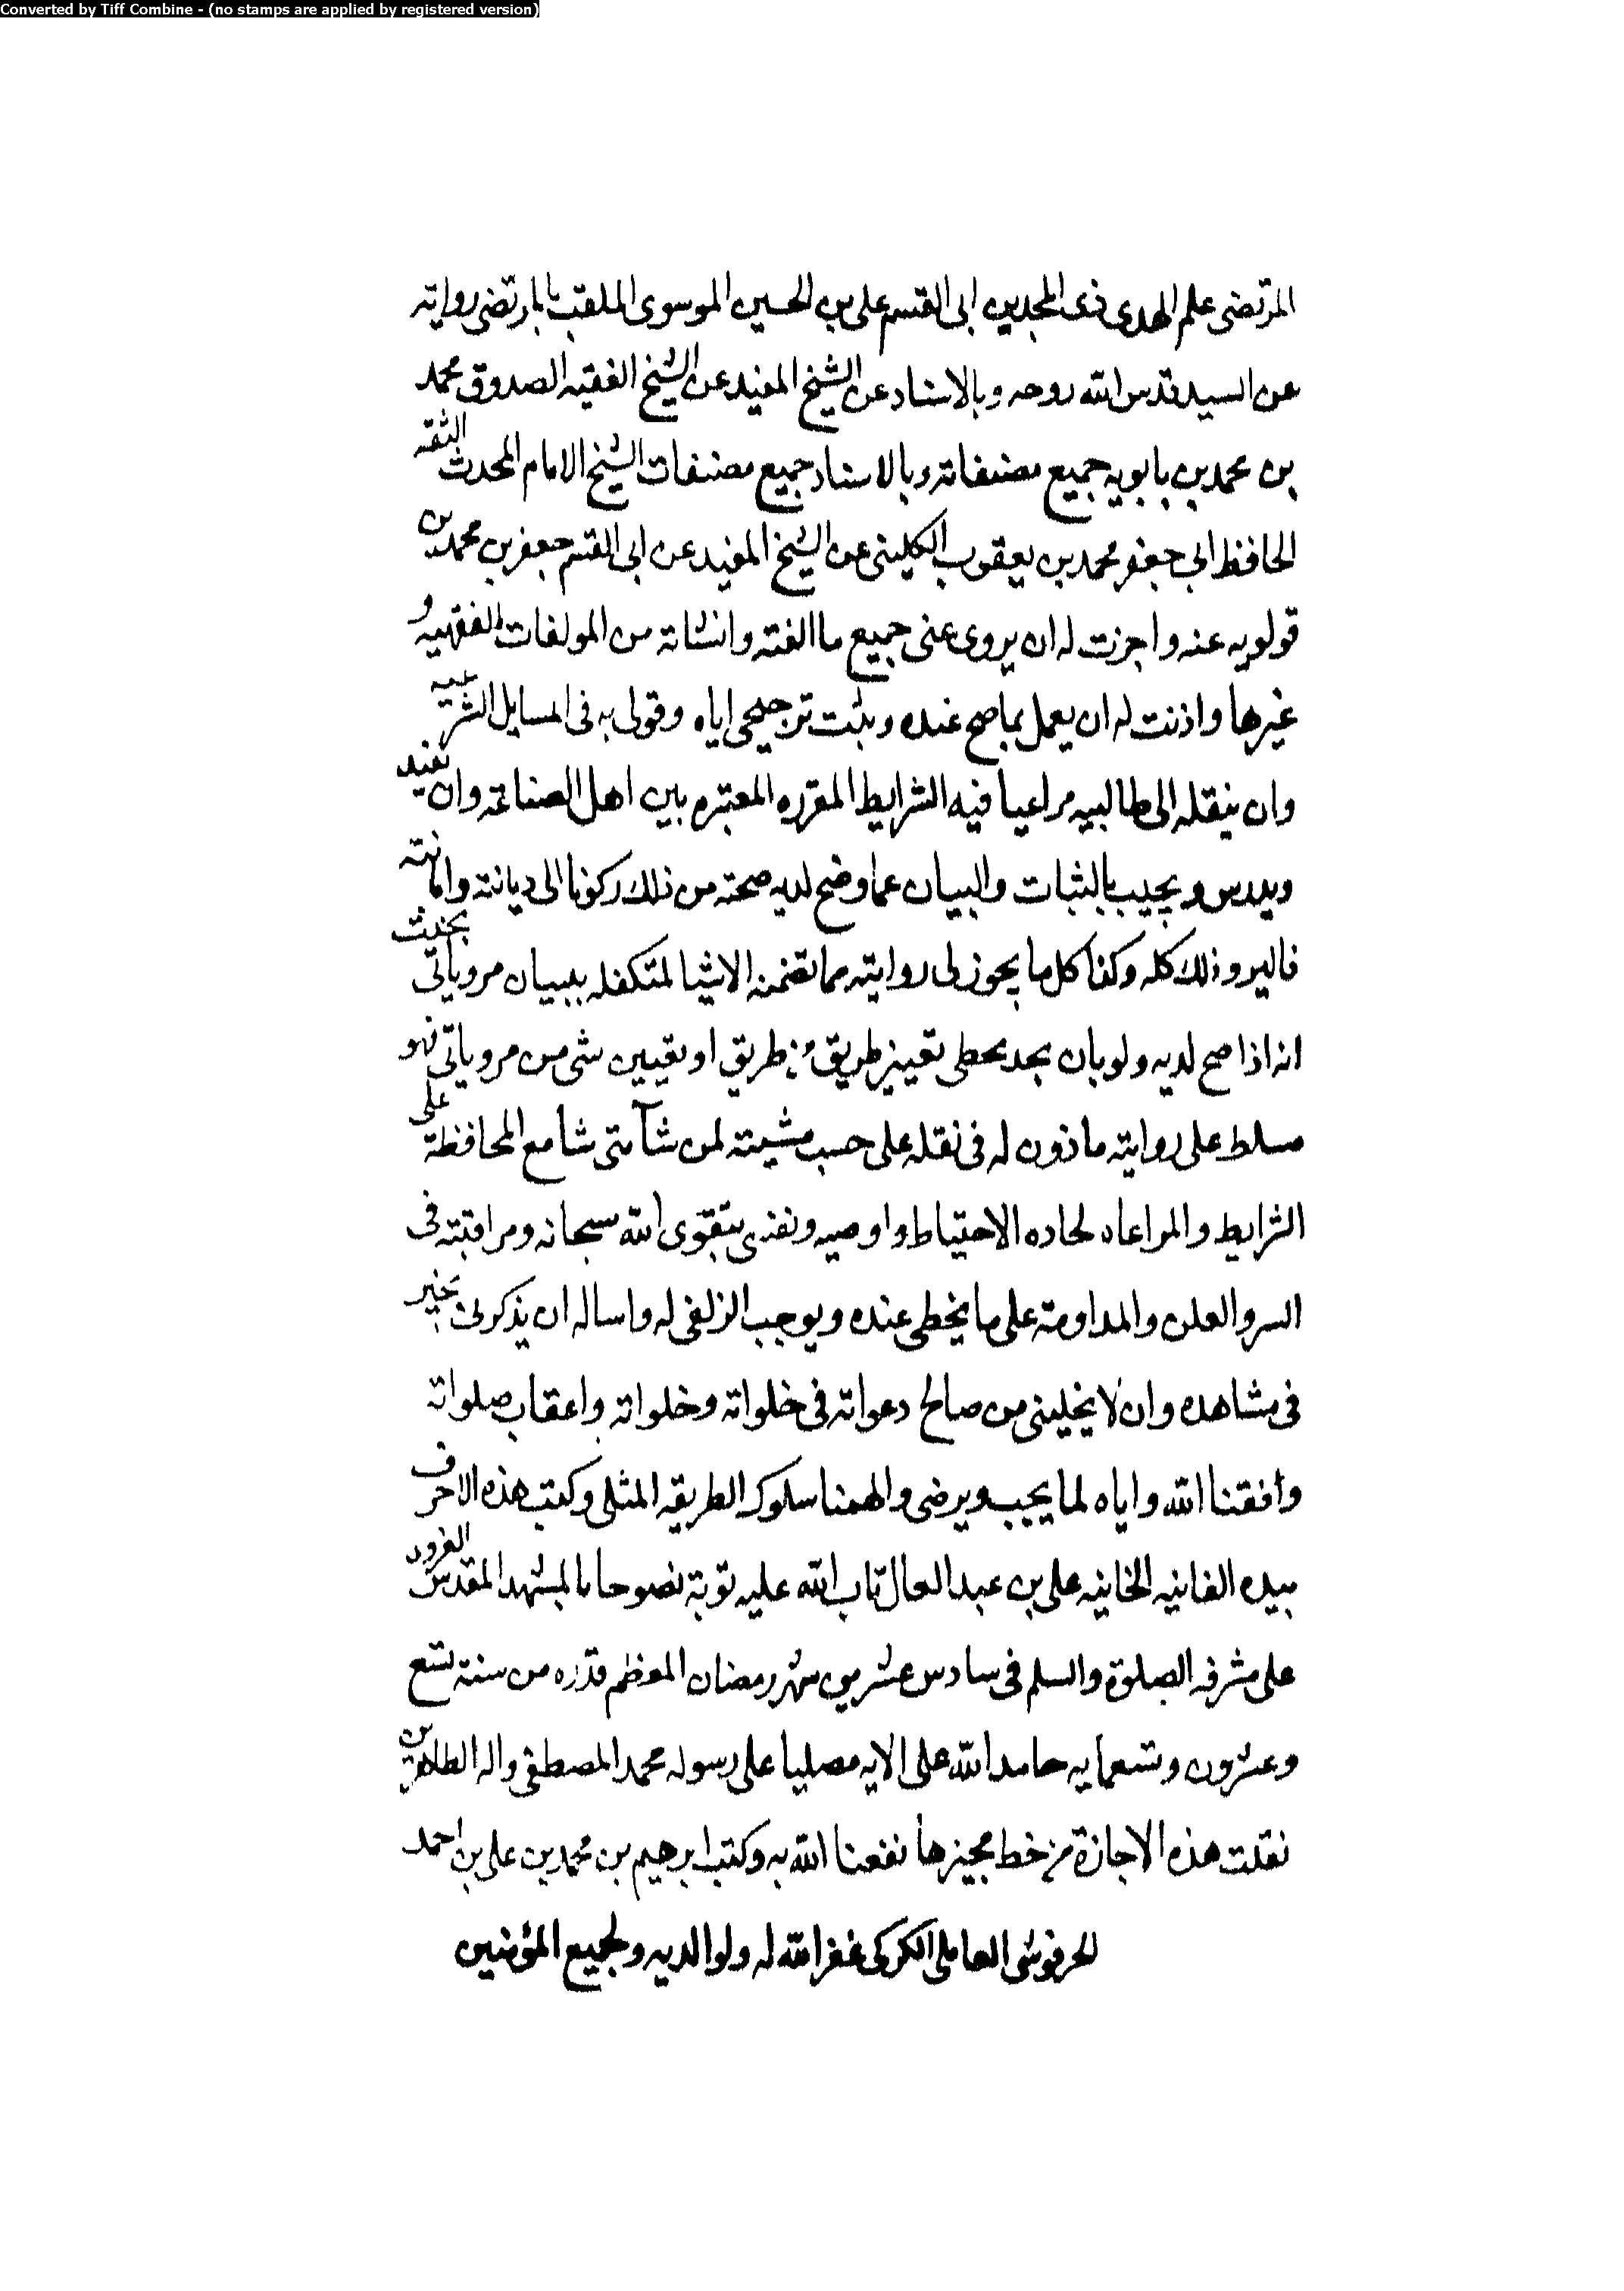 Converted by Tiff Combine - (no stamps are applied by registered version)
المرتضى علم الهدى ذى المجدين ابى القسم على بن الحسين الموسوى الملقب بالمرتضى روايته
عن السيد قدس الله روحه وبالاسناد عن الشيخ المفيد عن الشيخ الفقيه الصدوق محمد
بن محمد بن بابويه جميع مصنفاته وبالاسناد جميع مصنفات الشيخ الامام المحدث الثقه
الحافظ ابي جعفر محمد بن يعقوب الكلينى عن الشيخ المفيد عن ابى القسم جعفر بن محمد بن
قولويه عنه واجزت له ان يروى عنى جميع ما الفته وانشاته من المولفات الفقهيه و
غيرها واذنت له ان يعمل بما صح عنده وثبت ترجيحى اياه وقولى به فى المسايل الشرعيه
وان ينقله الى طالبيه مراعيا فيه الشرايط المقرره المعتبره بين اهل الصناعه وان يفيد
ويدرس ويجيب بالثبات والبيان عما وضح لديه صحته من ذلك ركونا الى ديانته وامانته
فاليرو ذلك كله وكذا كل ما يجوز لى روايته مما تضمنه الاثبا لمتكفله ببيان مروياتى بحيث
انه اذا صح لديه ولو بان يجد بخطى تعيين طريق من طريق او تعيين شى من مروياتى فهو
مسلط على روايته ماذون له فى نقله على حسب مشيته لمن شآ متى شا مع المحافظة على
الشرايط والمراعاه لجاده الاحتياط واوصيه ونفسى بتقوى الله سبحانه ومراقبته فى
السر والعلن والمداومة على ما يحظى عنده ويوجب الزلفى له واساله ان يذكرنى بخير
فى مشاهده وان لا يخلينى من صالح دعواته فى خلواته وخلواته واعقاب صلواته
وافقنا الله واياه لما يحب ويرضى والهمنا سلوك الطريقه المثلى وكتب هذه الاحرف
بيده الفانيه الخانيه على بن عبد العال تاب الله عليه توبة نصوحا بالمشهد المقدس الغروى
على مشرفه الصلوة والسلم فى سادس عشر من شهر رمضان المعظم قدره من سنة تسع
وعشرون وتسعمايه حامدا لله على الايه مصليا على رسوله محمد المصطفى واله الطاهرين
نقلت هذه الاجازة من خط مجيزها نفعنا الله به وكتب ابرهيم بن محمد بن على بن احمد
الحرفوشى العاملى الكركى غفر الله له ولوالديه ولجميع المؤمنين